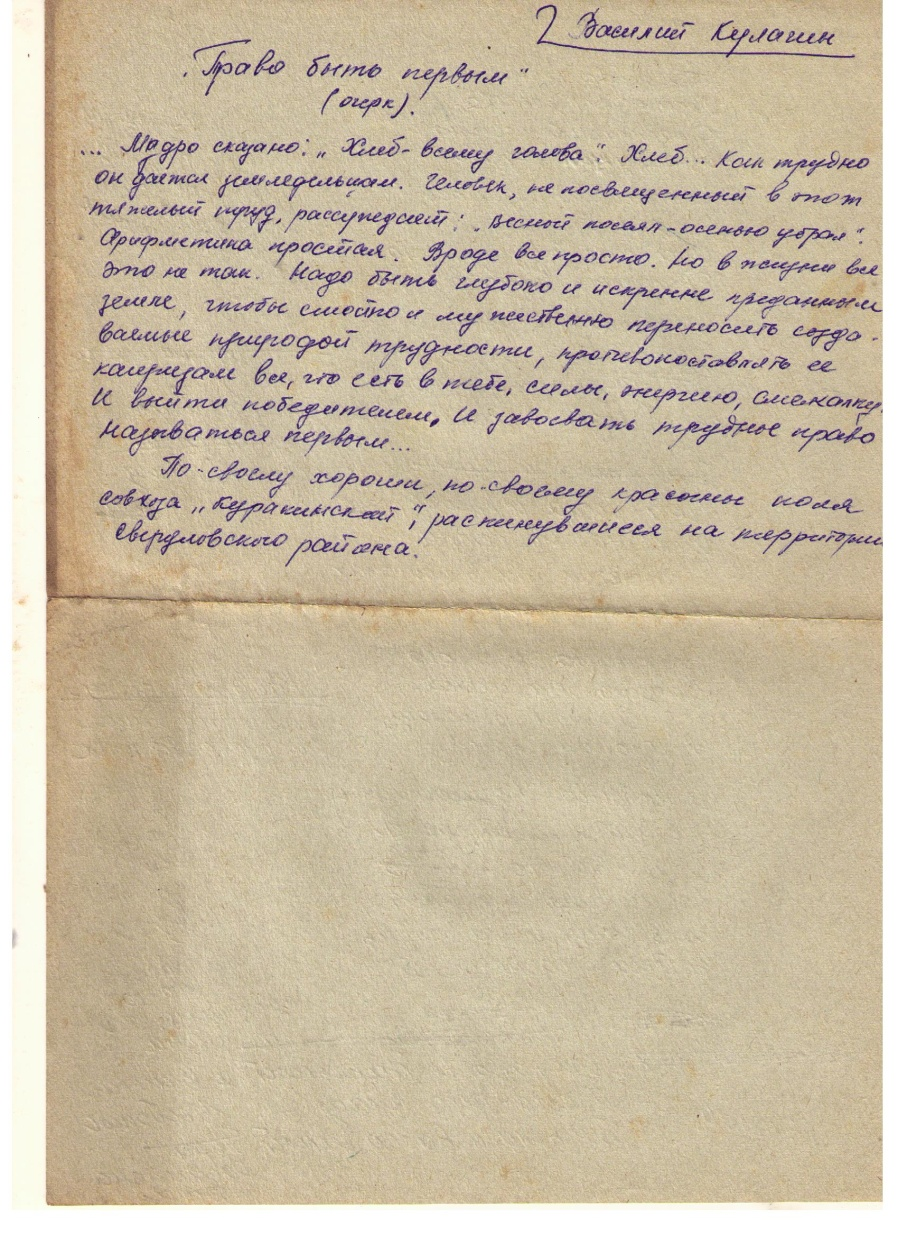 Василий Кулагин
„Право быть первым"
(очерк).
... Мудро сказано: „Хлеб - всему голова". Хлеб... Как трудно
он дается земледельцам. Человек, не посвященный в этот
тяжелый труд, рассуждает: „Весной посеял - осенью убрал".
Арифметика простая. Вроде все просто. Но в жизни все
это не так. Надо быть глубоко и искренне преданным
земле, чтобы стойко и мужественно переносить созда-
ваемые природой трудности, противопоставлять ее
капризам все, что есть в тебе, силы, энергию, смекалку.
И выйти победителем. И завоевать трудное право
называться первым...
По-своему хороши, по-своему красочны поля
совхоза „Куракинский", раскинувшиеся на территории
Свердловского района.